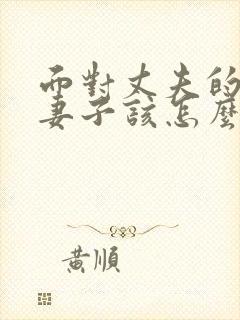 面對丈夫的
妻子該怎麼
黃順